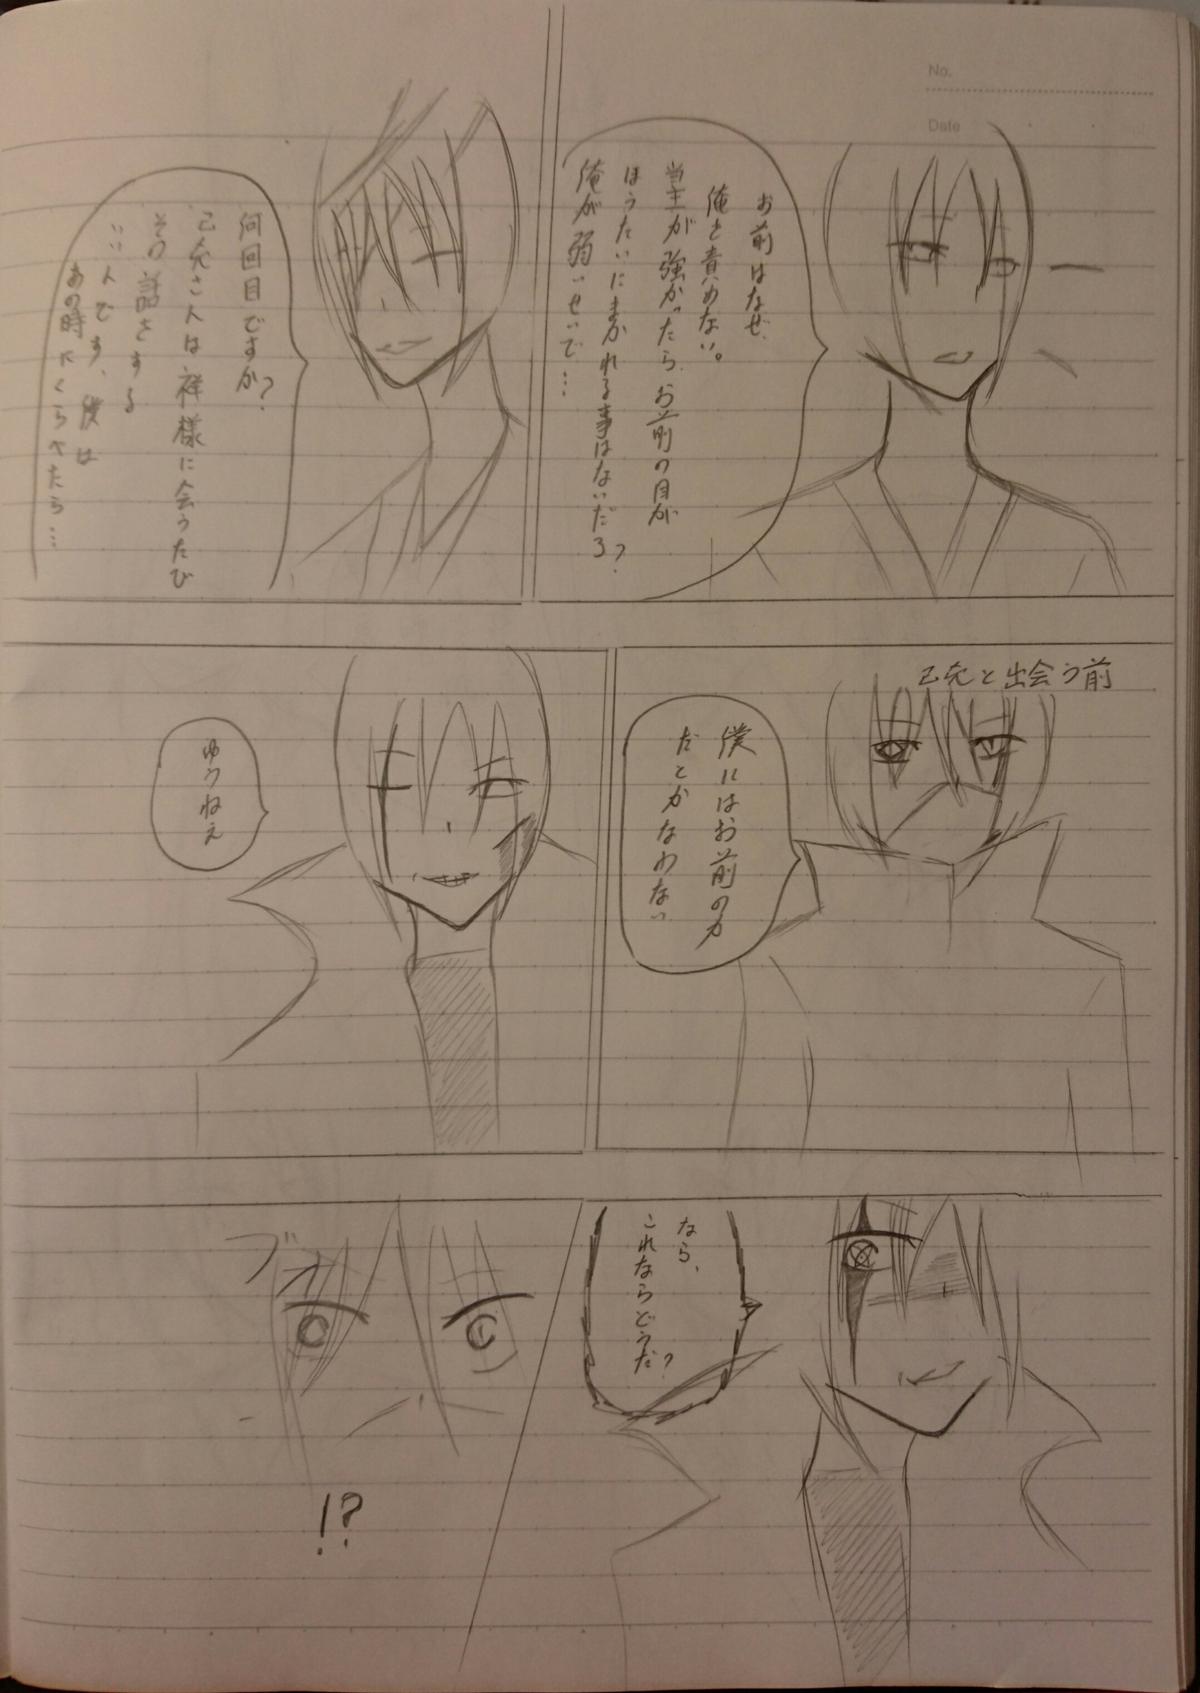 No.
Date
お前はなぜ、
俺を責めない。
当主が強かったら、お前の目が
ほうたいにまかれる事はないだろ?
俺が弱いせいで…
何回目ですか?
己充さんは祥様に会うたび
その話をする
いいんです、僕は
あの時にくらべたら…
己充と出会う前
僕にはお前の力
だとかなわない
ゆうねえ
なら、
これならどうだ?
ブオ
!?